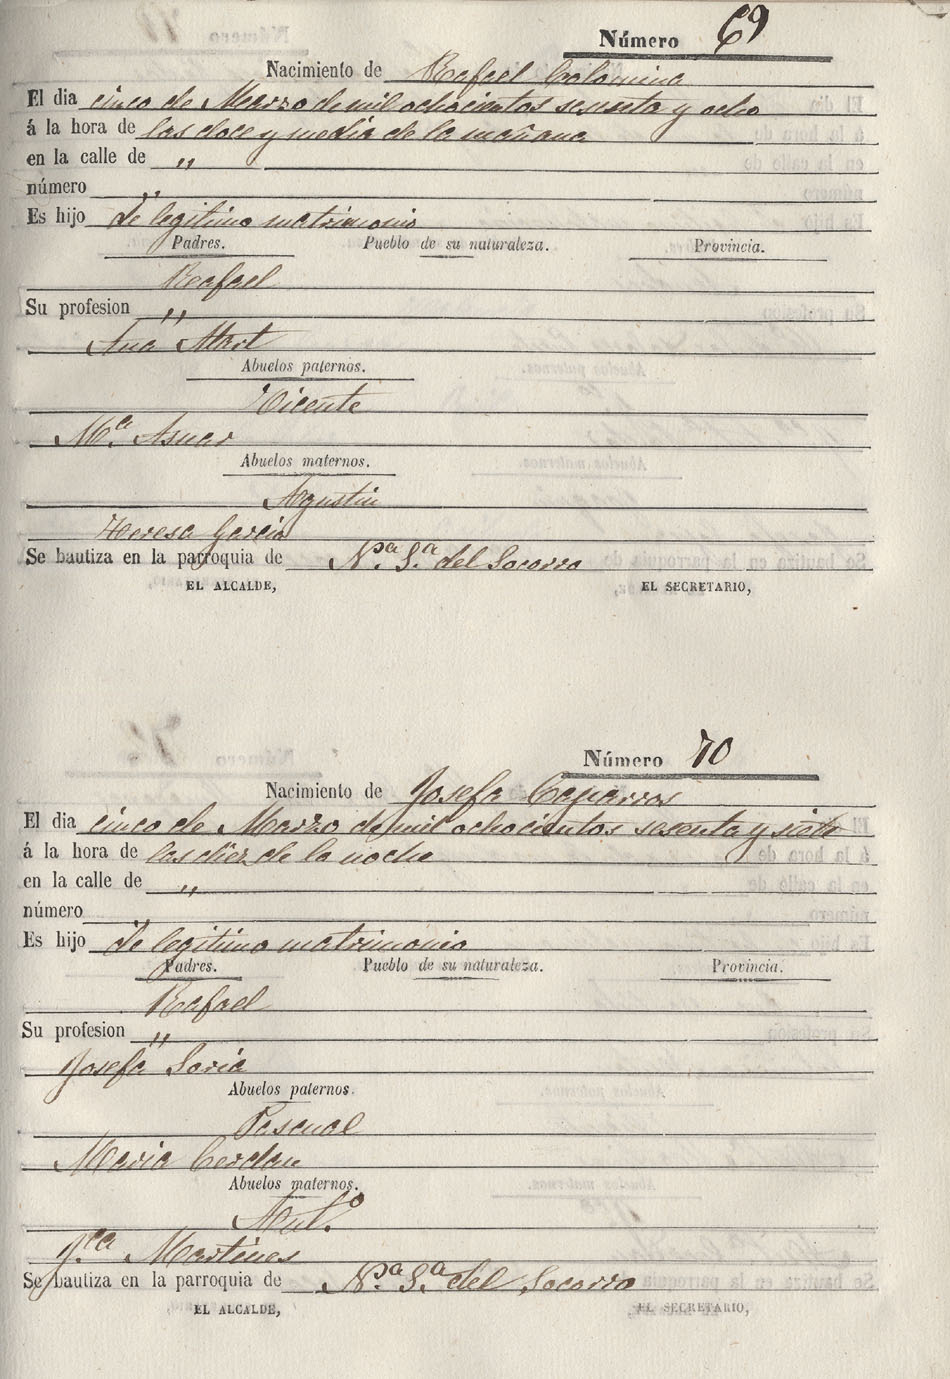 Número 69
Nacimiento de Rafael Colomina
El dia cinco de Marzo de mil ochocientos sesenta y ocho
á la hora de las doce y media de la mañana
en la calle de "
número "
Es hijo de legitimo matrimonio
Padres. Pueblo de su naturaleza. Provincia.
Rafael
Su profesion "
Ana Mart
Abuelos paternos.
Vicente
M.ª Asnar
Abuelos maternos.
Agustin
Teresa Garcia
Se bautiza en la parroquia de N.ª S.ª del Socorro
EL ALCALDE, EL SECRETARIO,
Número 70
Nacimiento de Josefa Caparros
El dia cinco de Marzo de mil ochocientos sesenta y siete
á la hora de las diez de la noche
en la calle de "
número "
Es hijo de legitimo matrimonio
Padres. Pueblo de su naturaleza. Provincia.
Rafael
Su profesion "
Josefa Soria
Abuelos paternos.
Pascual
Maria Cerdan
Abuelos maternos.
Ant.º
J.ca Martines
Se bautiza en la parroquia de N.ª S.ª del Socorro
EL ALCALDE, EL SECRETARIO,